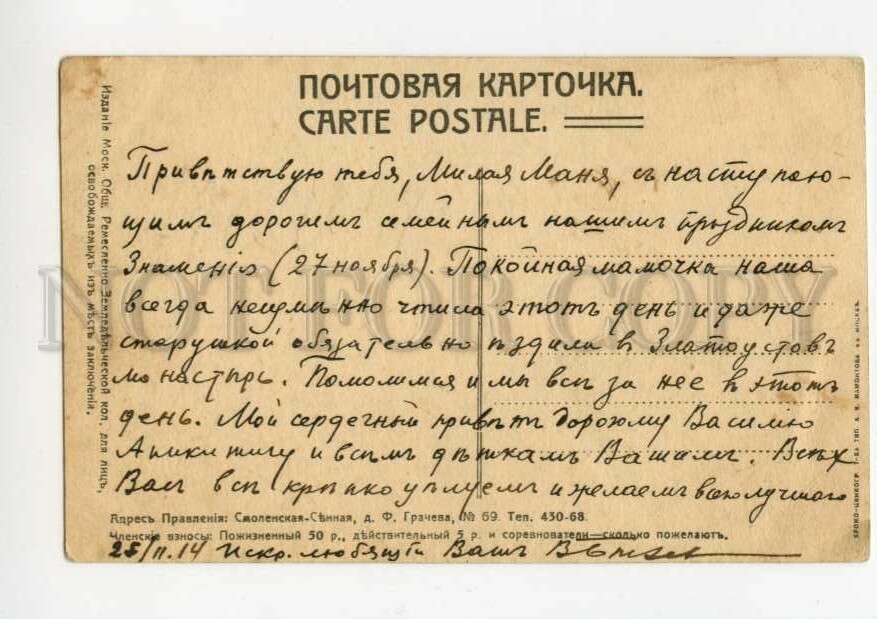 ПОЧТОВАЯ КАРТОЧКА.
CARTE POSTALE.
Изданіе Моск. Общ. Ремесленно-Земледѣльческой кол. для лицъ,
освобождаемыхъ изъ мѣстъ заключенія.
Привѣтствую тебя, милая Маня, съ наступаю-
щимъ дорогимъ семейнымъ нашимъ праздникомъ
Знаменія (27 ноября). Покойная мамочка наша
всегда неизмѣнно чтила этотъ день и даже
старушкой обязательно ѣздила в Златоустовъ
монастырь. Помолимся и мы всѣ за нее в этотъ
день. Мой сердечный привѣтъ дорогому Василію
Аникитичу и всѣмъ дѣткамъ Вашимъ. Всѣх
Вас всѣ крѣпко цѣлуемъ и желаемъ всего лучшаго
Адресъ Правленія: Смоленская-Сѣнная, д. Ф. Грачева, № 69. Тел. 430-68.
Членскіе взносы: Пожизненный 50 р., дѣйствительный 5 р. и соревнователи—сколько пожелаютъ.
25/11.14 Искр. любящій Вашъ
Т-ва ТИП. А. И. МАМОНТОВА въ МОСКВѢ.
NOT FOR COPY